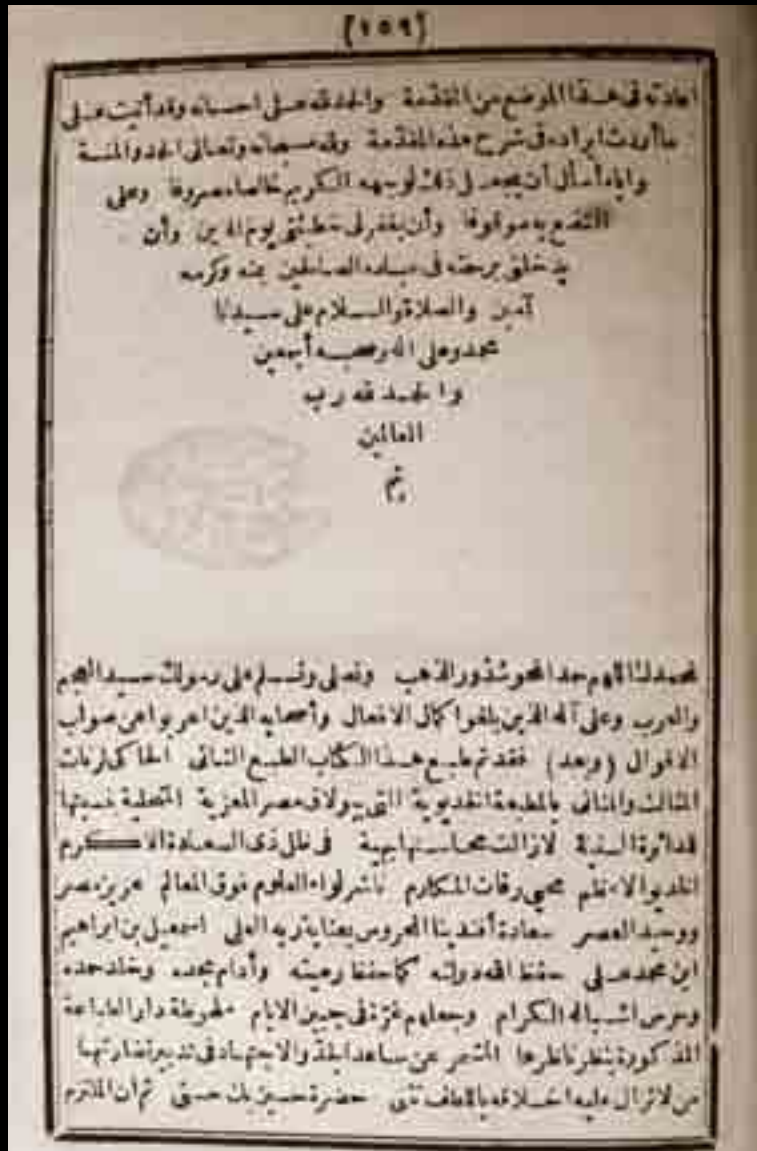 [١٥٩]
اعادته فى هذا الموضع من المقدمة والحمد لله على احسانه وقد أتيت على
ما أردت ايراده فى شرح هذه المقدمة ولله سبحانه وتعالى الحمد والمنة
واياه أسأل أن يجعل ذلك لوجهه الكريم خالصا مصروفا وعلى
النفع به موقوفا وأن يغفر لى خطيئتى يوم الدين وأن
يدخلنى برحمته فى عباده الصالحين بمنه وكرمه
آمين والصلاة والسلام على سيدنا
محمد وعلى اله وصحبه أجمعين
والحمد لله رب
العالمين
تم
نحمدك اللهم حمدا نحو شذور الذهب ونصلى ونسلم على رسولك سيد العجم
والعرب وعلى آله الذين بلغوا كمال الافعال وأصحابه الذين اعربوا عن صواب
الاقوال (وبعد) فقد تم طبع هذا الكتاب الطبع الثانى الحاكى لرنات
المثالث والمثانى بالمطبعة الخديوية التى ببولاق مصر المعزية المتحلية بنسبتها
للدائرة السنية لازالت محاسنها بهية فى ظل ذى السعادة الاكرم
الخديو الاعظم محيى رفات المكارم ناشر لواء العلوم فوق المعالم عزيز مصر
ووحيد العصر سعادة أفندينا المحروس بعناية ربه العلى اسمعيل بن ابراهيم
ابن محمد على حفظ الله دولته كما حفظ رعيته وأدام مجده وخلد حمده
وحرس اشباله الكرام وجعلهم غرة فى جبين الايام ملحوظة دار الطباعة
المذكورة بنظر ناظرها المشمر عن ساعد الجد والاجتهاد فى تدبير نضارتها
من لاتزال عليه اخلاقه باللطف تثنى حضرة حسين بك حسنى ثم ان الملتزم